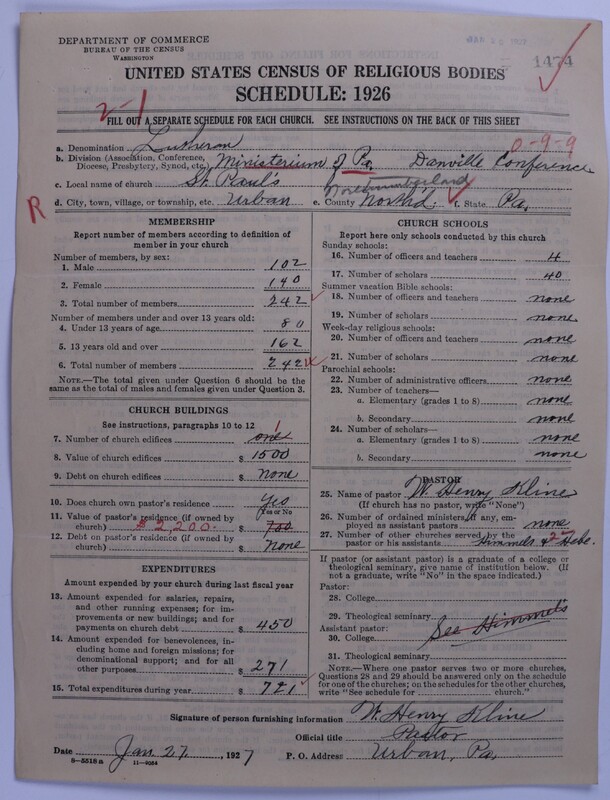 DEPARTMENT OF COMMERCE
BUREAU OF THE CENSUS
WASHINGTON
1474
UNITED STATES CENSUS OF RELIGIOUS BODIES
SCHEDULE: 1926
2-1
FILL OUT A SEPARATE SCHEDULE FOR EACH CHURCH. SEE INSTRUCTIONS ON THE BACK OF THIS SHEET
0-9-9
a. Denomination Lutheran
b. Division (Association, Conference, Diocese, Presbytery, Synod, etc.) Ministerium of Pa. Danville Conference
c. Local name of church St. Paul's
Northumberland
R
d. City, town, village, or township, etc. Urban e. County North'd f. State. Pa.
MEMBERSHIP
Report number of members according to definition of
member in your church
Number of members, by sex:
1. Male 102
2. Female 140
3. Total number of members. 242
Number of members under and over 13 years old:
4. Under 13 years of age 80
5. 13 years old and over 162
6. Total number of members 242
NOTE.—The total given under Question 6 should be
the same as the total of males and females given under Question 3.
CHURCH BUILDINGS
See instructions, paragraphs 10 to 12
7. Number of church edifices one 1
8. Value of church edifices $ 1500
9. Debt on church edifices $ none
10. Does church own pastor's residence Yes
Yes or No
11. Value of pastor's residence (if owned by
church) $2,200. $ 700
12. Debt on pastor's residence (if owned by
church) $ none
EXPENDITURES
Amount expended by your church during last fiscal year
13. Amount expended for salaries, repairs,
and other running expenses; for im-
provements or new buildings; and for
payments on church debt $ 450
14. Amount expended for benevolences, in-
cluding home and foreign missions; for
denominational support; and for all
other purposes $ 271
15. Total expenditures during year $ 721
CHURCH SCHOOLS
Report here only schools conducted by this church
Sunday schools:
16. Number of officers and teachers 4
17. Number of scholars 40
Summer vacation Bible schools:
18. Number of officers and teachers none
19. Number of scholars none
Week-day religious schools:
20. Number of officers and teachers none
21. Number of scholars none
Parochial schools:
22. Number of administrative officers none
23. Number of teachers—
a. Elementary (grades 1 to 8) none
b. Secondary none
24. Number of scholars—
a. Elementary (grades 1 to 8) none
b. Secondary none
PASTOR
25. Name of pastor W. Henry Kline
(If church has no pastor, write "None")
26. Number of ordained ministers, if any, em-
ployed as assistant pastors none
27. Number of other churches served by the
pastor or his assistants Himmels & Hebe. 2
If pastor (or assistant pastor) is a graduate of a college or
theological seminary, give name of institution below. (If
not a graduate, write "No" in the space indicated.)
Pastor:
28. College
29. Theological seminary
See Himmels
Assistant pastor:
30. College
31. Theological seminary
NOTE.—Where one pastor serves two or more churches,
Questions 28 and 29 should be answered only on the schedule
for one of the churches; on the schedules for the other churches,
write "See schedule for church."
Signature of person furnishing information W. Henry Kline
Official title Pastor
Date Jan. 27, 1927 P. O. Address Urban, Pa.
8—5518a 11—9064